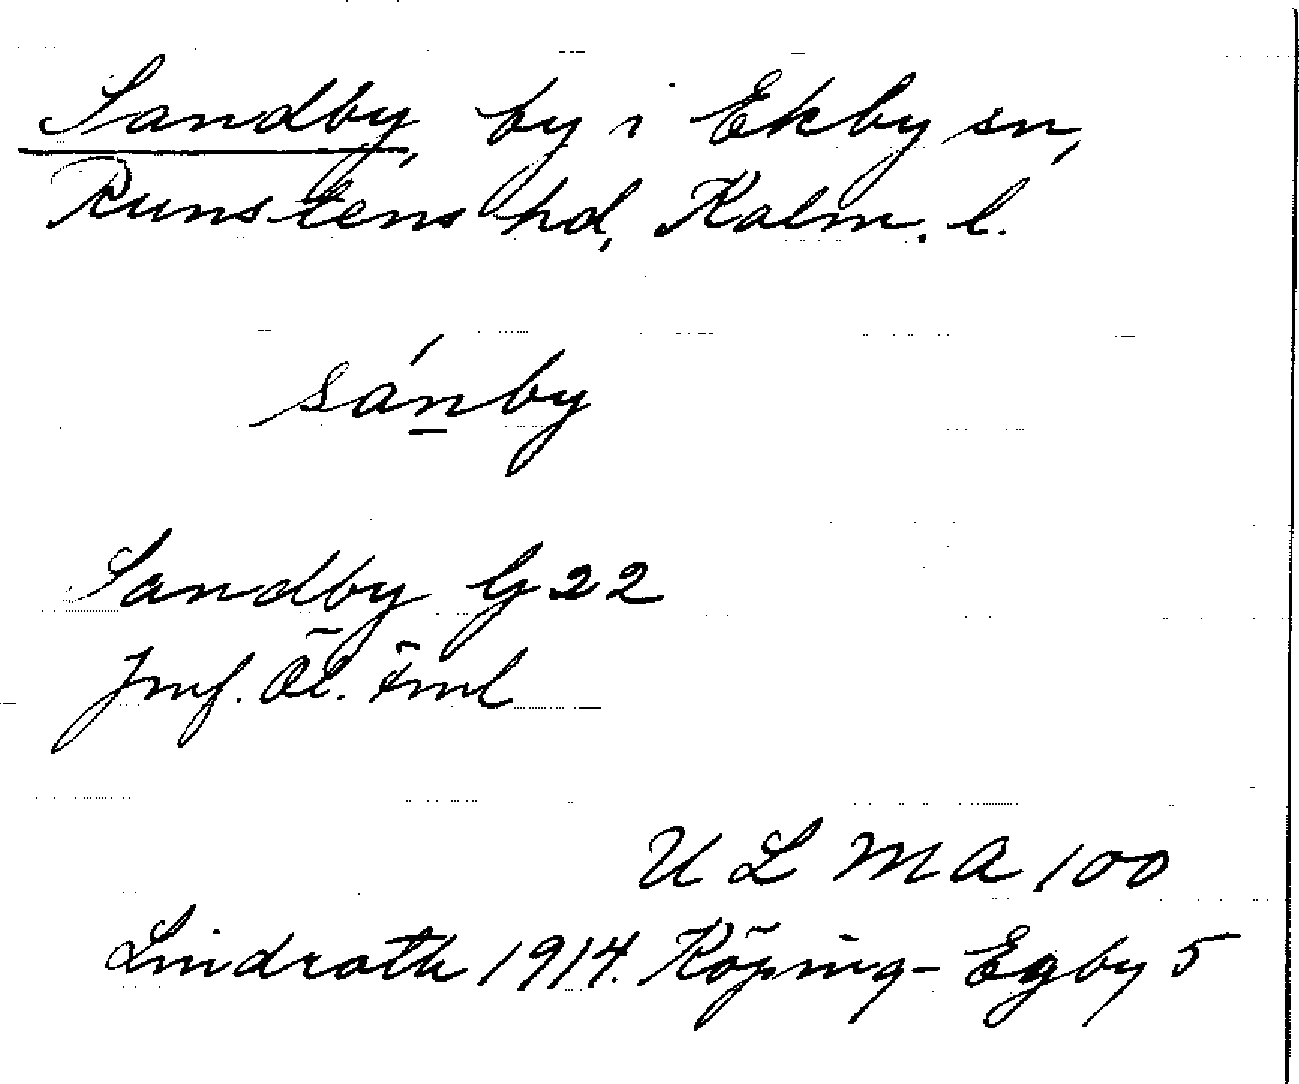 Sandby, by i Ekby sn,
Runstens hd, Kalm. l.
sánby
Sandby G 22
Jmf. Öl. Föml
U L M A 100
Lindroth 1914. Köping-Egby 5